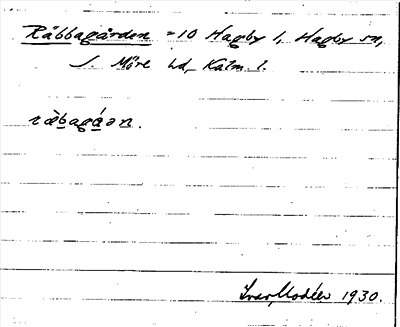 Räbbagården = 10 Hagby 1, Hagby sn,
S. Möre hd, Kalm. l.
ràbagáən.
Ivar Modéer 1930.